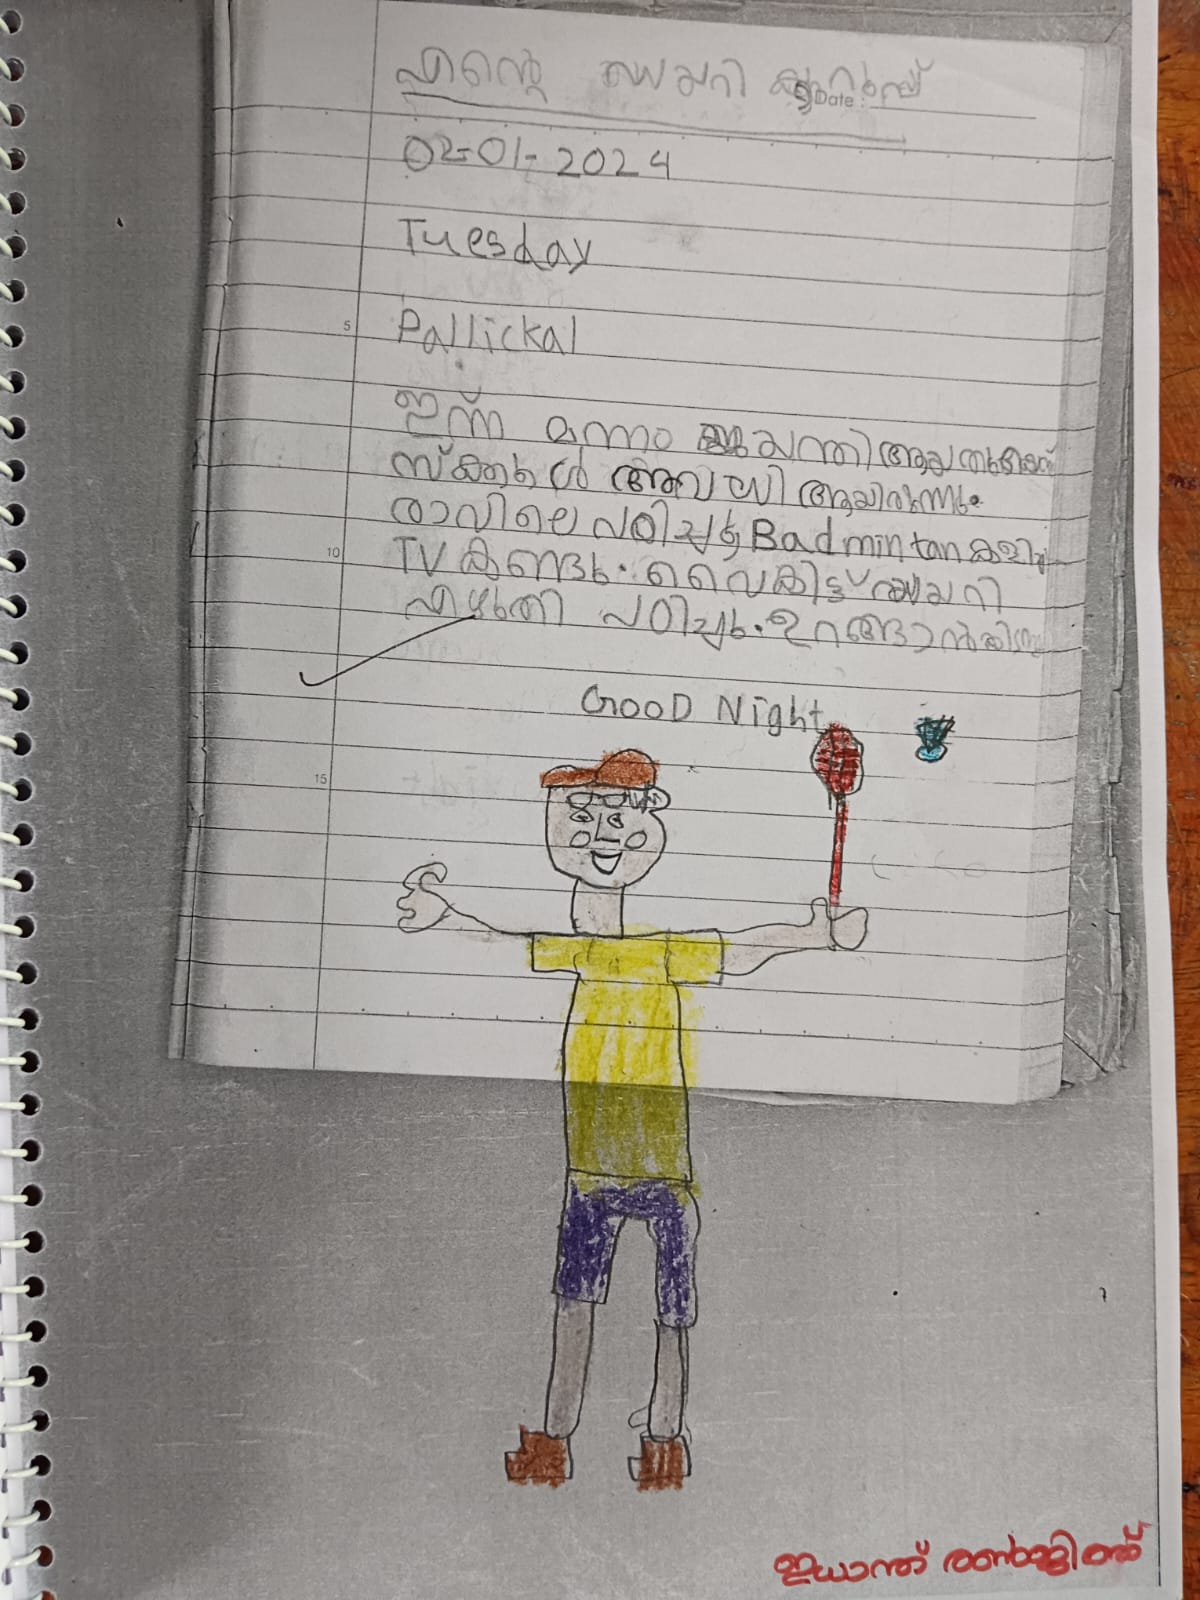 എന്റെ ഡയറി കുറുപ്പ്
Date :
02-01-2024
Tuesday
5
Pallickal
ഇന്ന് മന്നം ജയന്തി ആയതുകൊണ്ട്
സ്ക്കൂൾ അവധി ആയിരുന്നു.
രാവിലെ പഠിച്ചു Badmintan കളിച്ചു
10
TV കണ്ടു. വൈകിട്ട് ഡയറി
എഴുതി പഠിച്ചു. ഉറങ്ങാൻ കിടന്നു
GooD Night
15
ഇധാന്ത് രൺജിത്ത്